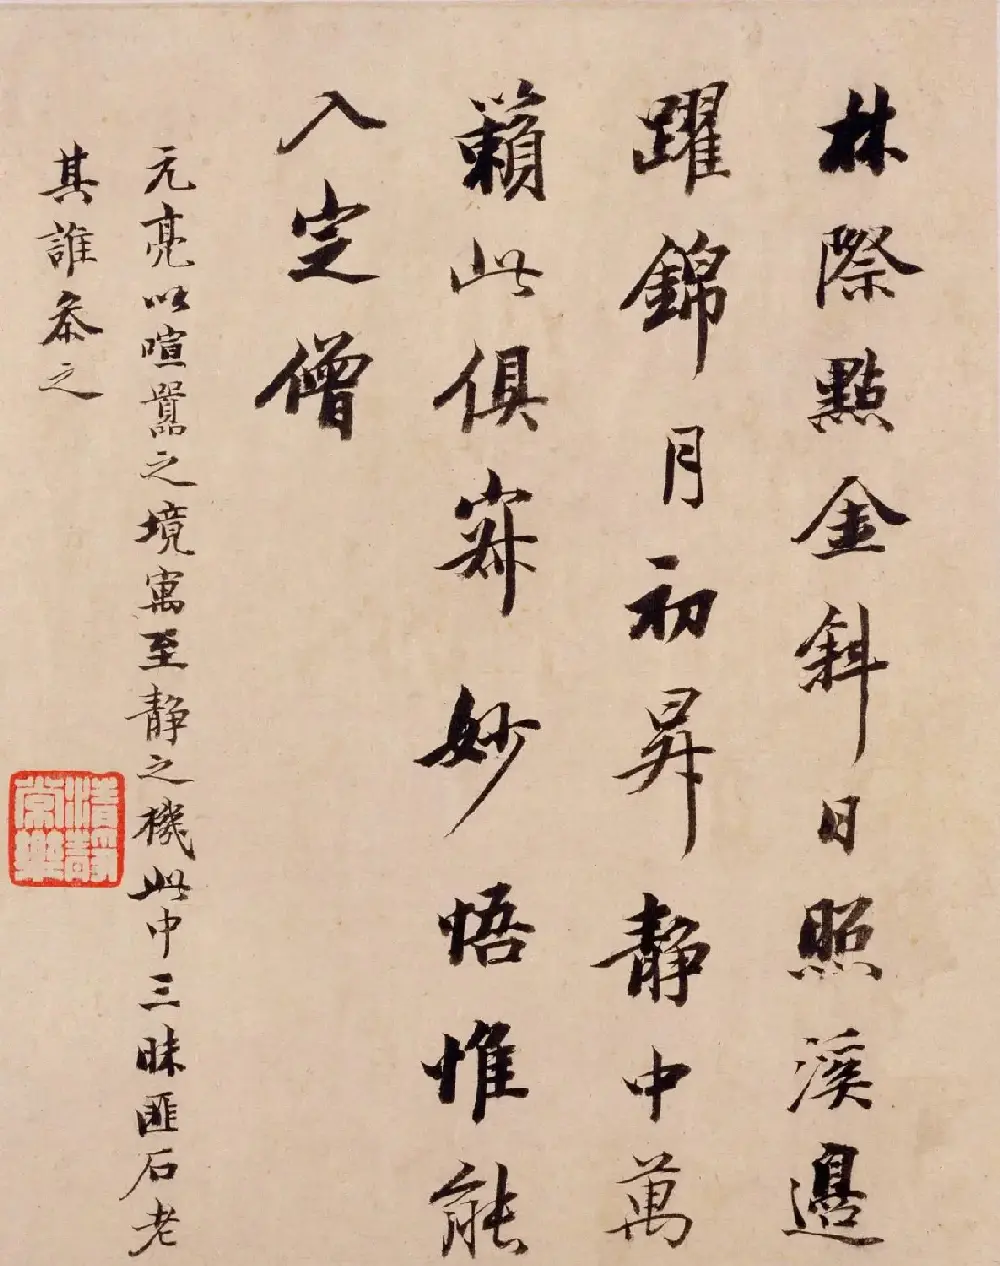 林際點金斜日照溪邊
躍錦月初昇靜中萬
籟此俱寂妙悟惟能
入定僧
元亮以喧囂之境寓至靜之機此中三昧匪石老
其誰叅之
清靜
常樂